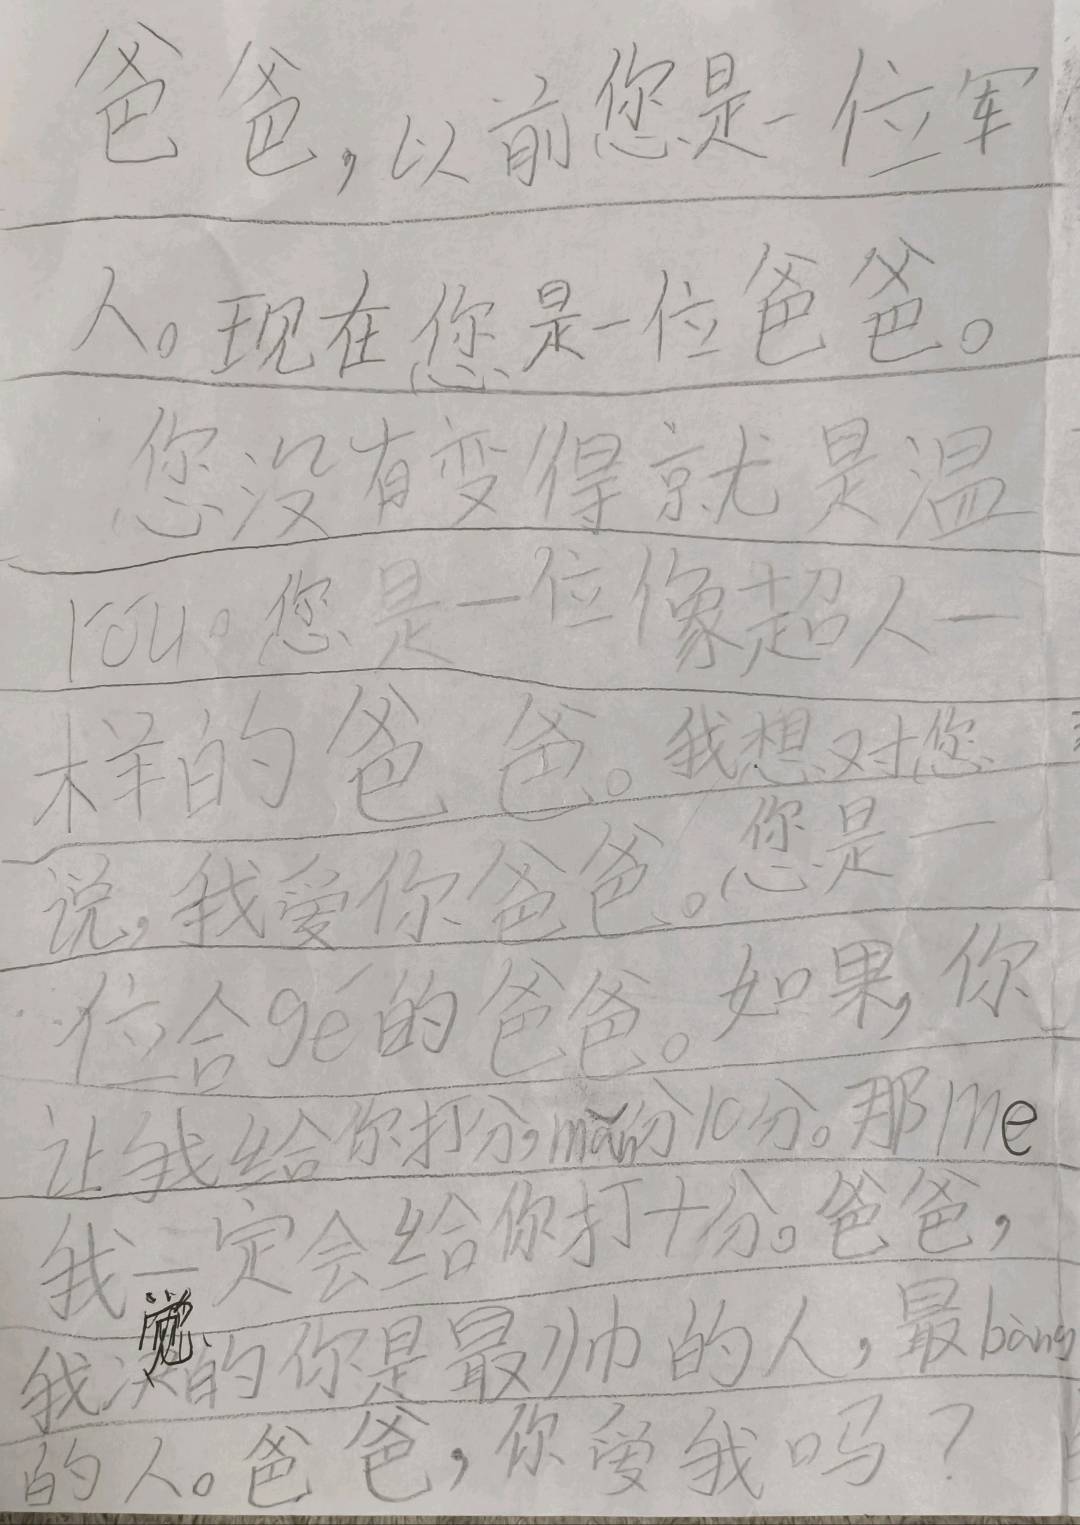 爸爸，以前您是一位军
人。现在您是一位爸爸。
您没有变得就是温
róu。您是一位像超人一
样的爸爸。我想对您
说，我爱你爸爸。您是一
位合gé的爸爸。如果，你
让我给你打分，mǎn分10分。那me
我一定会给你打十分。爸爸，
我觉的你是最帅的人，最bàng
的人。爸爸，你爱我吗？